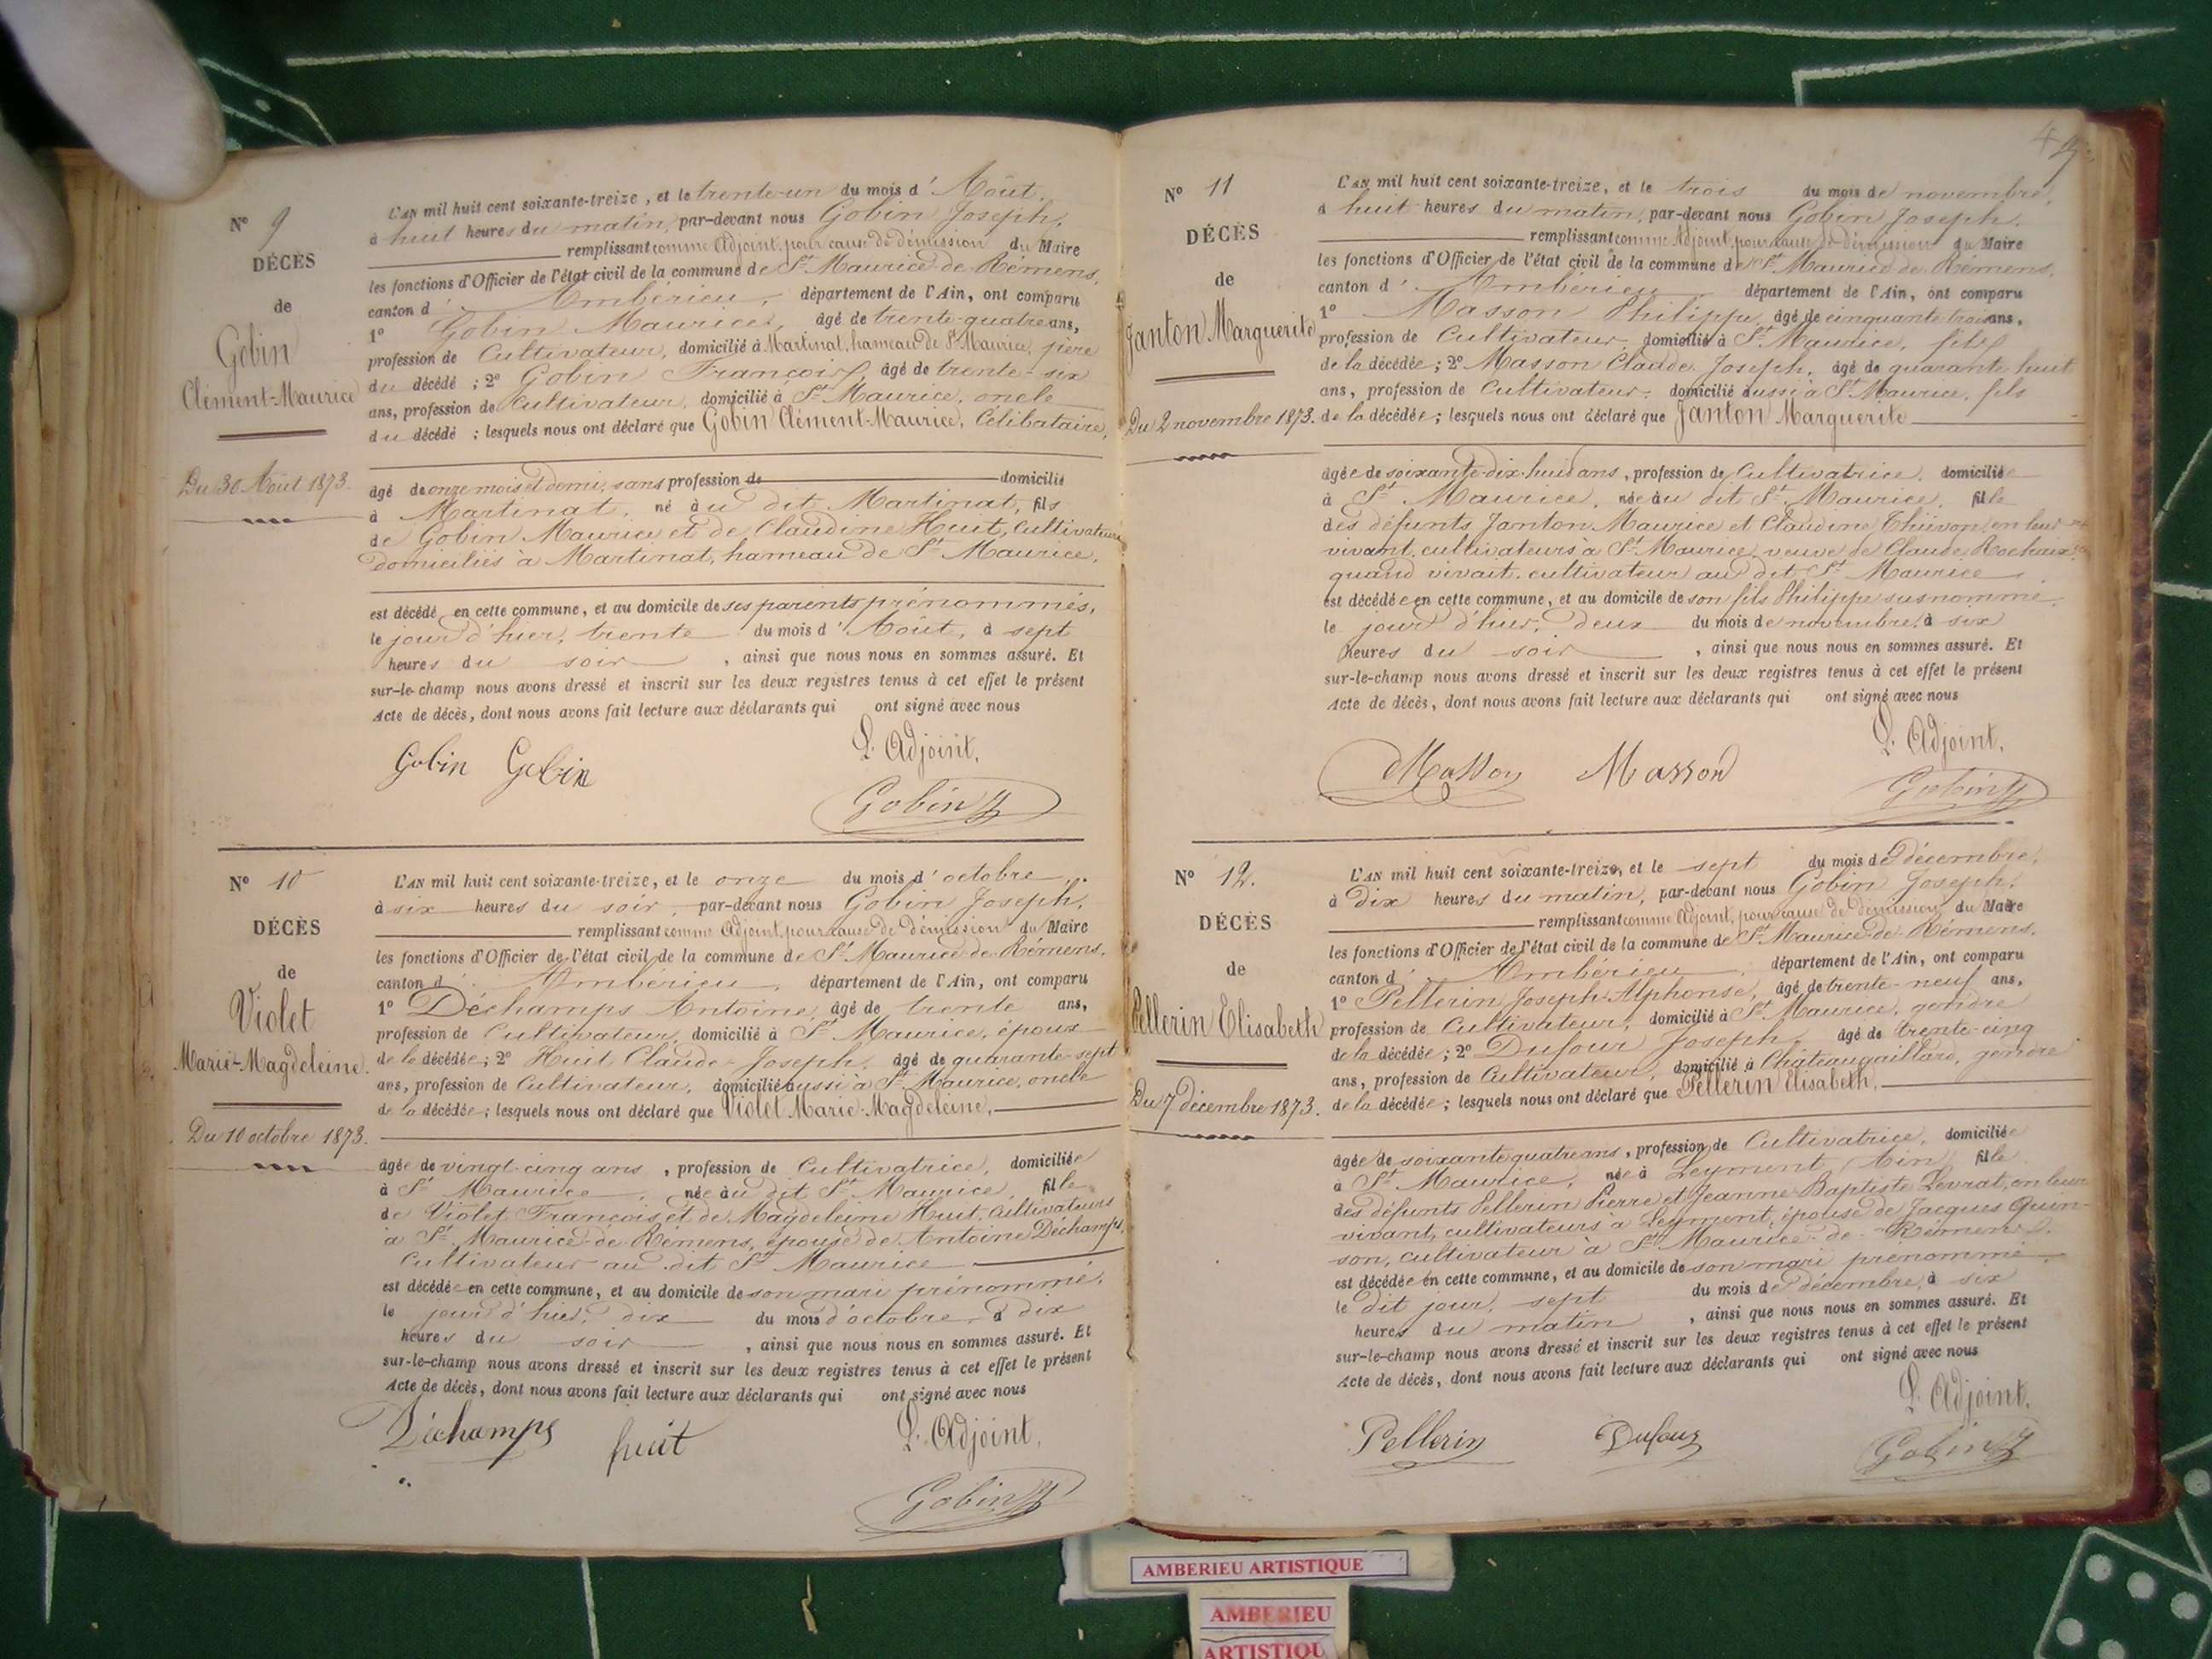 N° 9
DÉCÈS
de
Gobin
Clément-Maurice
Du 30 Août 1873.
L'AN mil huit cent soixante-treize, et le trente-un du mois d'Août,
à huit heures du matin, par-devant nous Gobin Joseph,
remplissant comme Adjoint, pour cause de démission du Maire
les fonctions d'Officier de l'état civil de la commune de St Maurice de Rémens,
canton d'Ambérieu, département de l'Ain, ont comparu
1° Gobin Maurice, âgé de trente-quatre ans,
profession de Cultivateur, domicilié à Martinat, hameau de St Maurice, père
du décédé ; 2° Gobin François, âgé de trente-six
ans, profession de Cultivateur, domicilié à St Maurice, oncle
du décédé ; lesquels nous ont déclaré que Gobin Clément-Maurice, Célibataire,
âgé de onze mois et demi, sans profession de domicilié
à Martinat, né au dit Martinat, fils
de Gobin Maurice et de Claudine Huit, Cultivateurs
domiciliés à Martinat, hameau de St Maurice,
est décédé en cette commune, et au domicile de ses parents prénommés,
le jour d'hier, trente du mois d'Août, à sept
heures du soir, ainsi que nous nous en sommes assuré. Et
sur-le-champ nous avons dressé et inscrit sur les deux registres tenus à cet effet le présent
Acte de décès, dont nous avons fait lecture aux déclarants qui ont signé avec nous
L'Adjoint,
Gobin Gobin
Gobin J
N° 10
DÉCÈS
de
Violet
Marie-Magdeleine.
Du 10 octobre 1873.
L'AN mil huit cent soixante-treize, et le onze du mois d'octobre,
à six heures du soir, par-devant nous Gobin Joseph,
remplissant comme Adjoint, pour cause de démission du Maire
les fonctions d'Officier de l'état civil de la commune de St Maurice de Rémens,
canton d'Ambérieu, département de l'Ain, ont comparu
1° Déchamps Antoine, âgé de trente ans,
profession de Cultivateur, domicilié à St Maurice, époux
de la décédée ; 2° Huit Claude-Joseph, âgé de quarante-sept
ans, profession de Cultivateur, domicilié aussi à St Maurice, oncle
de la décédée ; lesquels nous ont déclaré que Violet Marie-Magdeleine,
âgée de vingt-cinq ans, profession de Cultivatrice, domiciliée
à St Maurice, née au dit St Maurice, fille
de Violet François et de Magdeleine Huit, Cultivateurs
à St Maurice-de-Rémens, épouse de Antoine Déchamps,
Cultivateur au dit St Maurice
est décédée en cette commune, et au domicile de son mari prénommé,
le jour d'hier, dix du mois d'octobre, à dix
heures du soir, ainsi que nous nous en sommes assuré. Et
sur-le-champ nous avons dressé et inscrit sur les deux registres tenus à cet effet le présent
Acte de décès, dont nous avons fait lecture aux déclarants qui ont signé avec nous
Déchamps huit L'Adjoint,
Gobin J
N° 11
DÉCÈS
de
Janton Marguerite
Du 2 novembre 1873.
L'AN mil huit cent soixante-treize, et le trois du mois de novembre,
à huit heures du matin, par-devant nous Gobin Joseph,
remplissant comme Adjoint, pour cause de démission du Maire
les fonctions d'Officier de l'état civil de la commune de St Maurice de Rémens,
canton d'Ambérieu département de l'Ain, ont comparu
1° Masson Philippe, âgé de cinquante trois ans,
profession de Cultivateur, domicilié à St Maurice, fils
de la décédée ; 2° Masson Claude-Joseph, âgé de quarante-huit
ans, profession de Cultivateur, domicilié aussi à St Maurice, fils
de la décédée ; lesquels nous ont déclaré que Janton Marguerite
âgée de soixante-dix-huit ans, profession de Cultivatrice, domiciliée
à St Maurice, née au dit St Maurice, fille
des défunts Janton Maurice et Claudine Thiévon, en leur
vivant, cultivateurs à St Maurice, veuve de Claude Rochaix,
quand vivait, cultivateur au dit St Maurice
est décédée en cette commune, et au domicile de son fils Philippe susnommé,
le jour d'hier, deux du mois de novembre, à six
heures du soir, ainsi que nous nous en sommes assuré. Et
sur-le-champ nous avons dressé et inscrit sur les deux registres tenus à cet effet le présent
Acte de décès, dont nous avons fait lecture aux déclarants qui ont signé avec nous
L'Adjoint,
Masson Masson
Gobin J
N° 12.
DÉCÈS
de
Pellerin Elisabeth
Du 7 décembre 1873.
L'AN mil huit cent soixante-treize, et le sept du mois de décembre,
à dix heures du matin, par-devant nous Gobin Joseph,
remplissant comme Adjoint, pour cause de démission du Maire
les fonctions d'Officier de l'état civil de la commune de St Maurice de Rémens,
canton d'Ambérieu, département de l'Ain, ont comparu
1° Pellerin Joseph-Alphonse, âgé de trente-neuf ans,
profession de Cultivateur, domicilié à St Maurice, gendre
de la décédée ; 2° Dufour Joseph, âgé de trente-cinq
ans, profession de Cultivateur, domicilié à Châteaugaillard, gendre
de la décédée ; lesquels nous ont déclaré que Pellerin Elisabeth,
âgée de soixante quatre ans, profession de Cultivatrice, domiciliée
à St Maurice, née à Leyment, Ain, fille
des défunts Pellerin Pierre et Jeanne-Baptiste Levrat, en leur
vivant, cultivateurs à Leyment, épouse de Jacques Quin-
son, cultivateur à St Maurice-de-Rémens,
est décédée en cette commune, et au domicile de son mari prénommé
le dit jour, sept du mois de décembre, à six
heures du matin, ainsi que nous nous en sommes assuré. Et
sur-le-champ nous avons dressé et inscrit sur les deux registres tenus à cet effet le présent
Acte de décès, dont nous avons fait lecture aux déclarants qui ont signé avec nous
L'Adjoint,
Pellerin Dufour Gobin J
AMBERIEU ARTISTIQUE
AMBERIEU
ARTISTIQU